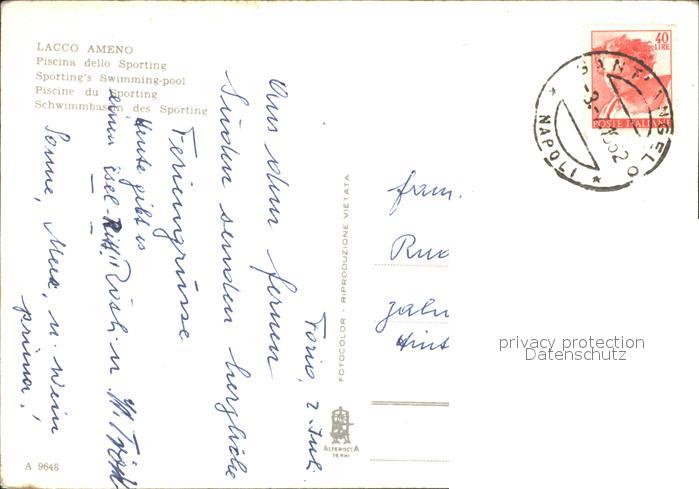 LACCO AMENO
Piscina dello Sporting
Sporting's Swimming-pool
Piscine du Sporting
Schwimmbassin des Sporting
Forio, 2 Juli
Aus dem fernen
Süden senden herzliche
Feriengrüsse
Heute gibt es
einen Esel-Ritt!
Rösli u. W.
Sonne, Meer, u. Wein
prima!
FOTOCOLOR - RIPRODUZIONE VIETATA
ALTEROCCA
TERNI
A 9648
40
LIRE
POSTE ITALIANE
SANT'ANGELO
* NAPOLI *
Fam.
privacy protection
Datenschutz